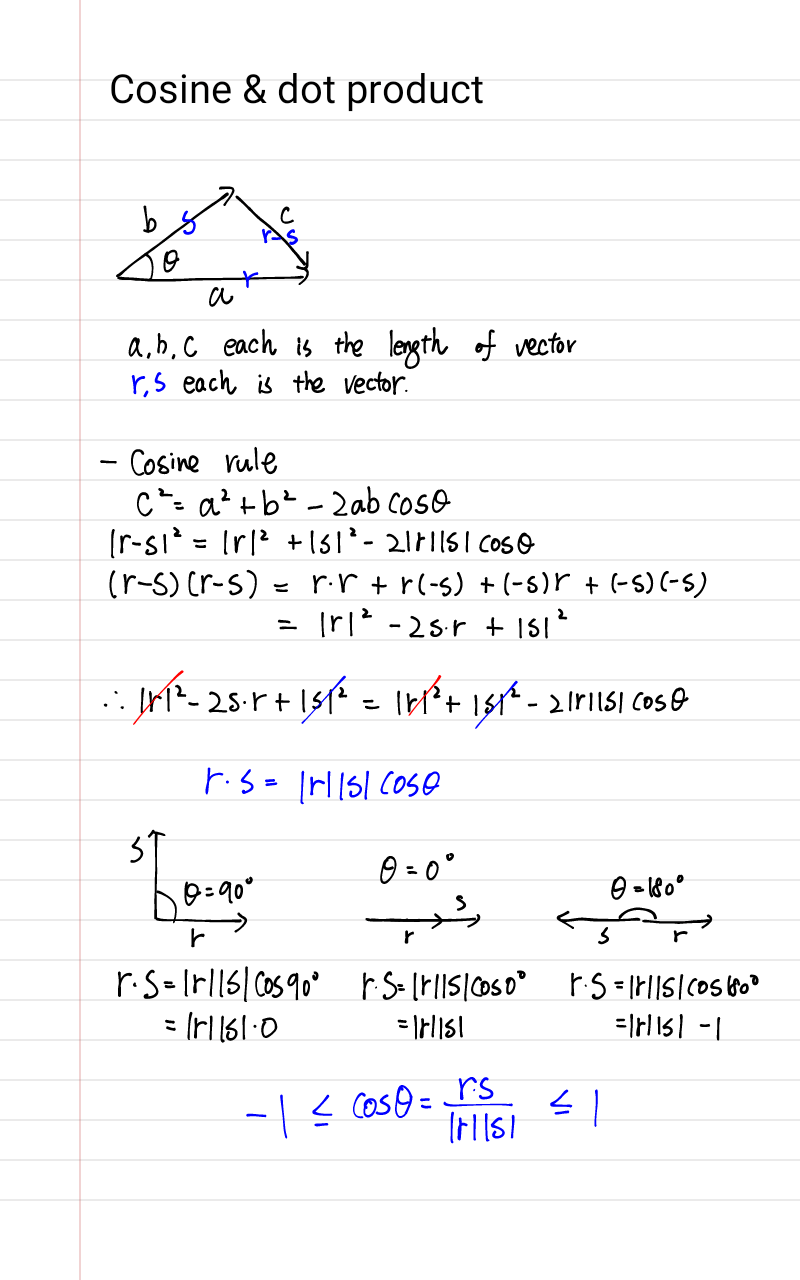 Cosine & dot product
b s c
r-s
θ
r
a
a, b, c each is the length of vector
r, s each is the vector.
- Cosine rule
c² = a² + b² - 2ab cosθ
|r-s|² = |r|² + |s|² - 2|r||s| cosθ
(r-s)(r-s) = r·r + r(-s) + (-s)r + (-s)(-s)
= |r|² - 2s·r + |s|²
∴ |r|² - 2s·r + |s|² = |r|² + |s|² - 2|r||s| cosθ
r·s = |r||s| cosθ
s θ=90° r
θ=0° s r
θ=180° s r
r·s = |r||s| cos90° r·s = |r||s| cos0° r·s = |r||s| cos180°
= |r||s|·0 = |r||s| = |r||s| -1
-1 ≤ cosθ = r·s / |r||s| ≤ 1